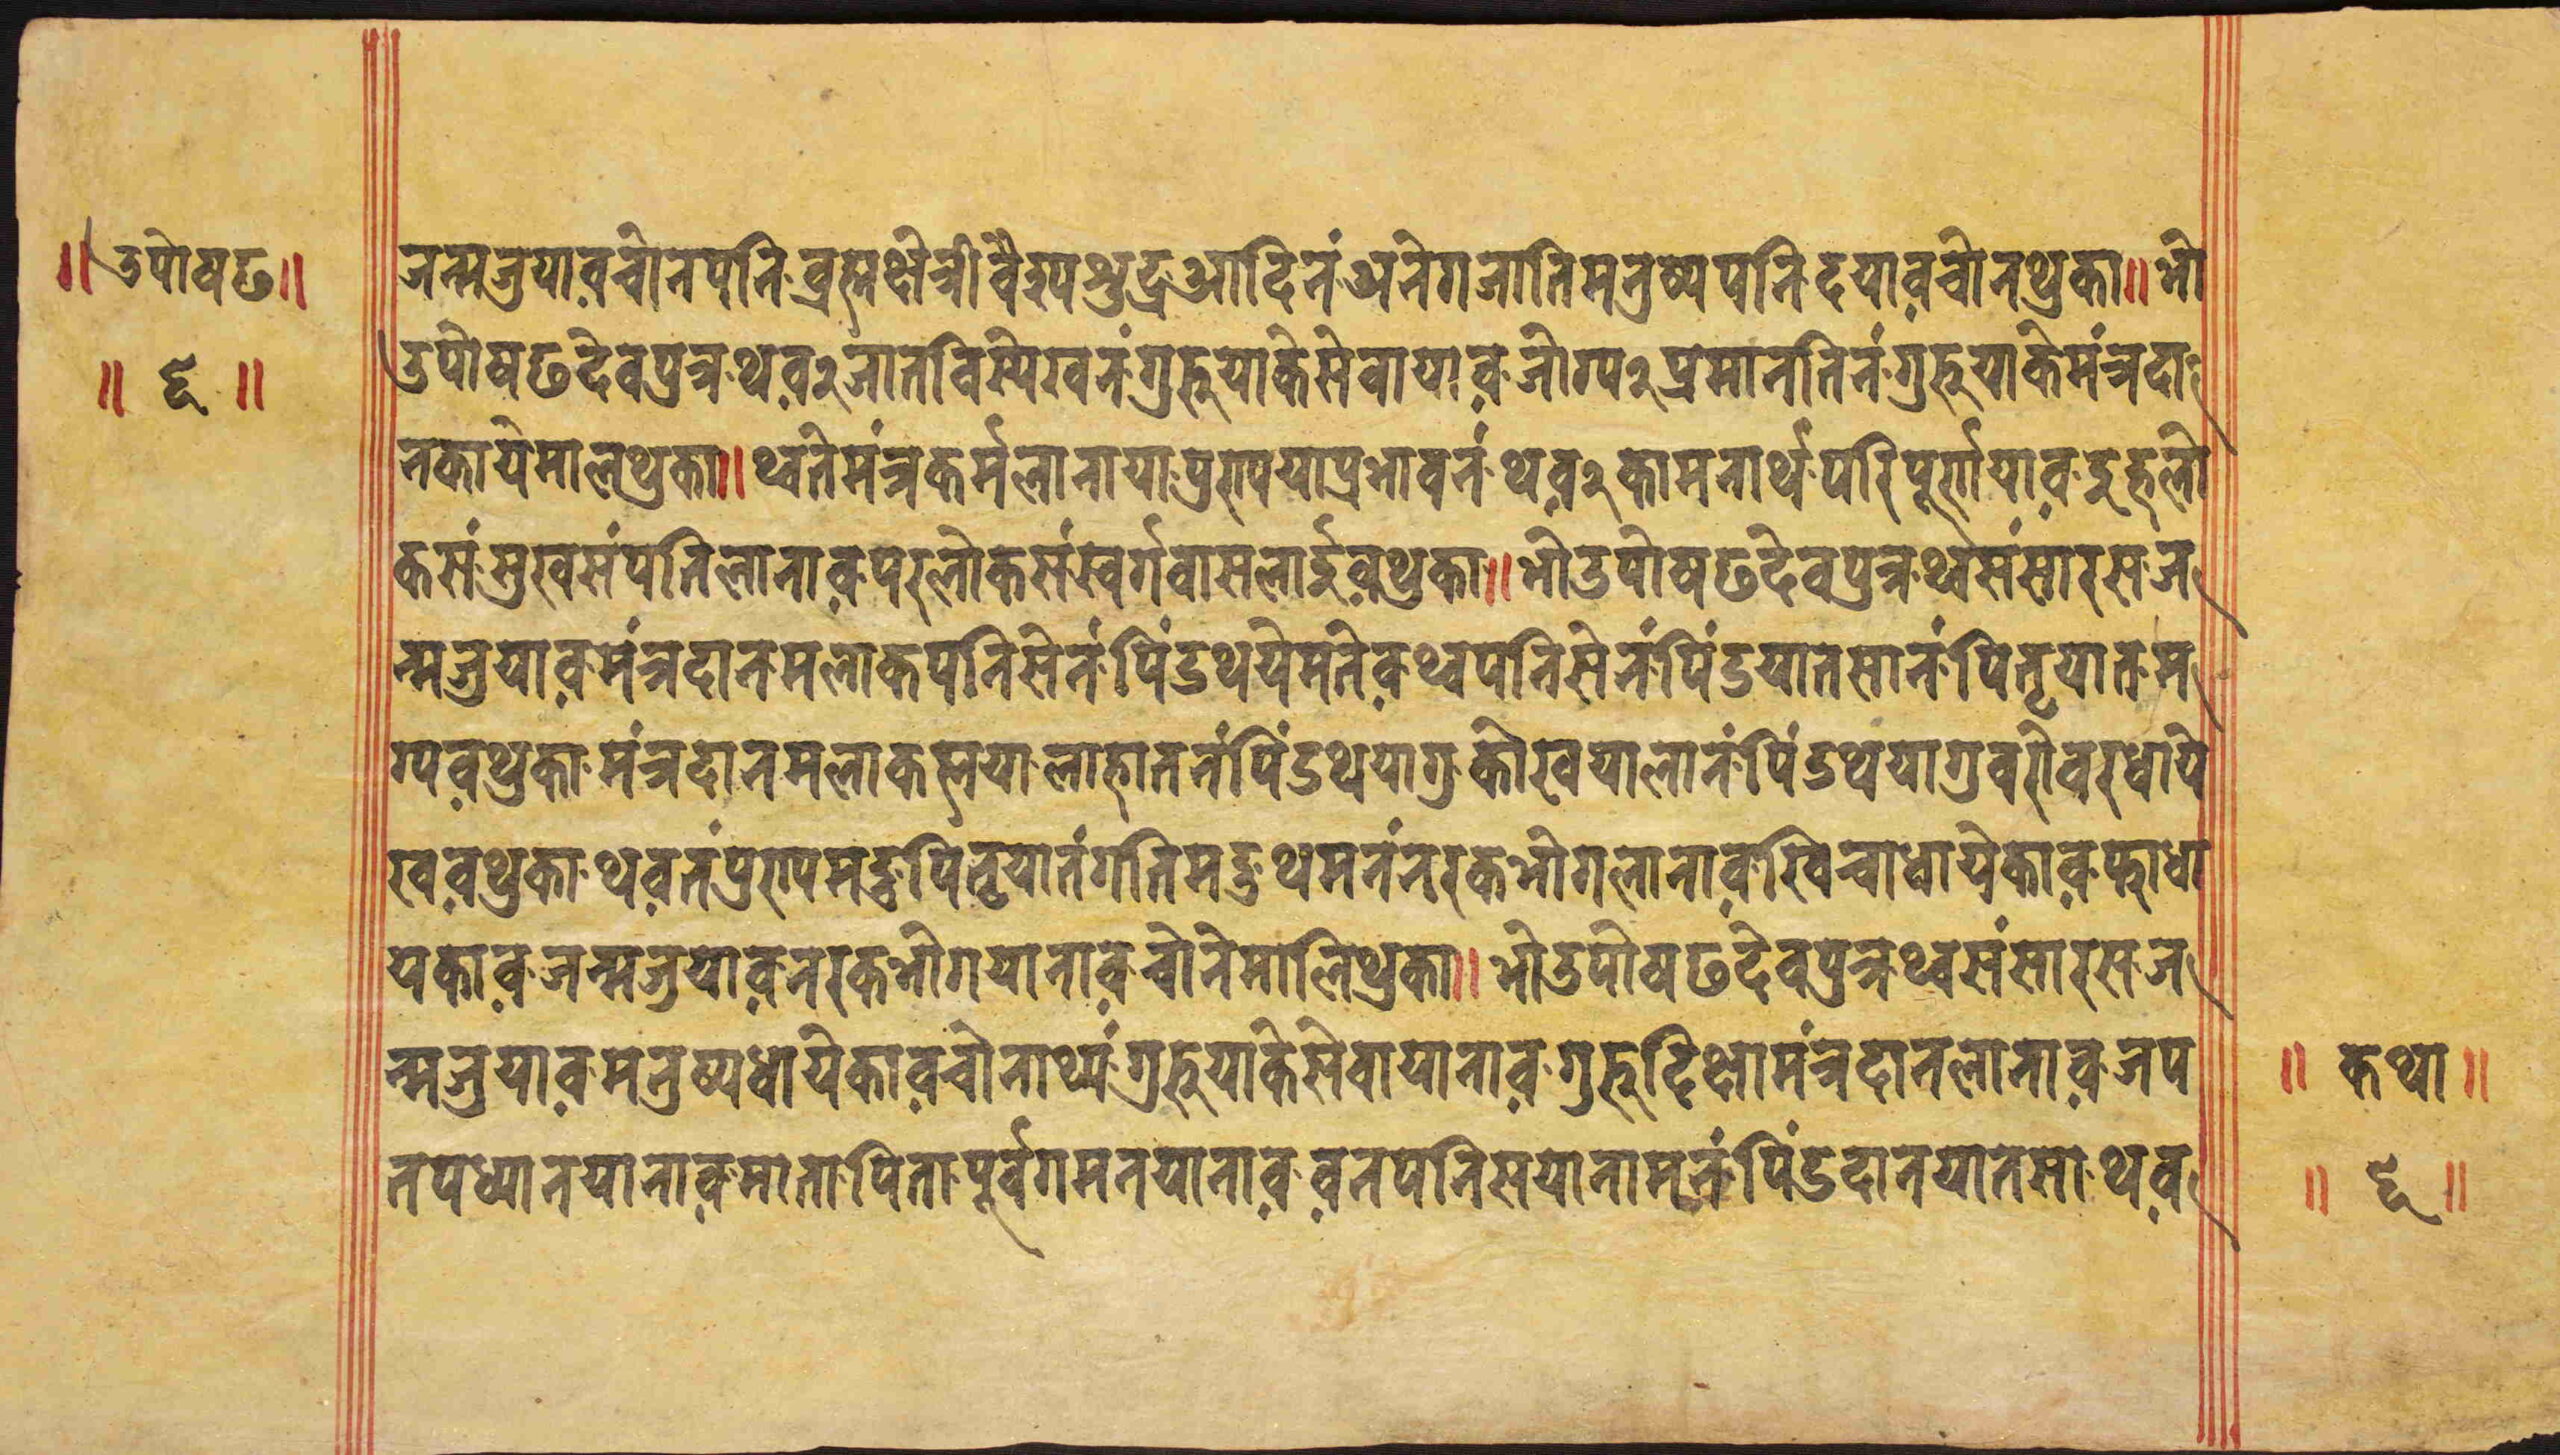 ॥ उपोषढ ॥
॥ ६ ॥
जन्मजुयाव़चोनपनि व्रह्मक्षेत्री वैश्य श्रुद्र आदिनं अनेगजातिमनुष्यपनि दयाव़चोनथुका॥ भो
उपोषढदेवपुत्र थव़२जातविस्येखनं गुरुयाके सेवायाव़ जोग्य२प्रमानतिनं गुरुयाके मंत्रदा
नकायेमालथुका॥ थ्वते मंत्रकर्मलानाया पुरुषयाप्रभावनं थव़२कामनार्थ परिपूर्णयाव़ इहलो
कसं सुखसंपतिलानाव़ परलोकसं स्वर्गवासलाईव़थुका॥ भो उपोषढदेवपुत्र थ्वसंसारस ज
न्मजुयाव़ मंत्रदानमलाकपनिसेनं पिंडथयेमतेव़ थ्वपनिसेनं पिंडयातसानं पितृयात म
ग्यव़थुका मंत्रदानमलाकह्मया लाहातनं पिंडथयागु कोखयालानं पिंडथयागु वरोवरधाये
खव़व़थुका थव़तं पुरुषमदु पितृयातं गतिमदु थमनं नरकभोगलानाव़ खिचाधायेकाव़ फाधा
यकाव़ जन्मजुयाव़ नरकभोगयानाव़ चोनेमालिथुका॥ भो उपोषढदेवपुत्र थ्वसंसारस ज
न्मजुयाव़ मनुष्यधायेकाव़चोनाथ्यं गुरुयाके सेवायानाव़ गुरुदिक्षा मंत्रदानलानाव़ जप
तपध्यानयानाव़ मातापिता पूर्वगमनयानाव़ व़नपेनिसयानामनं पिंडदानयातसा थव़
॥ कथा ॥
॥ ६ ॥